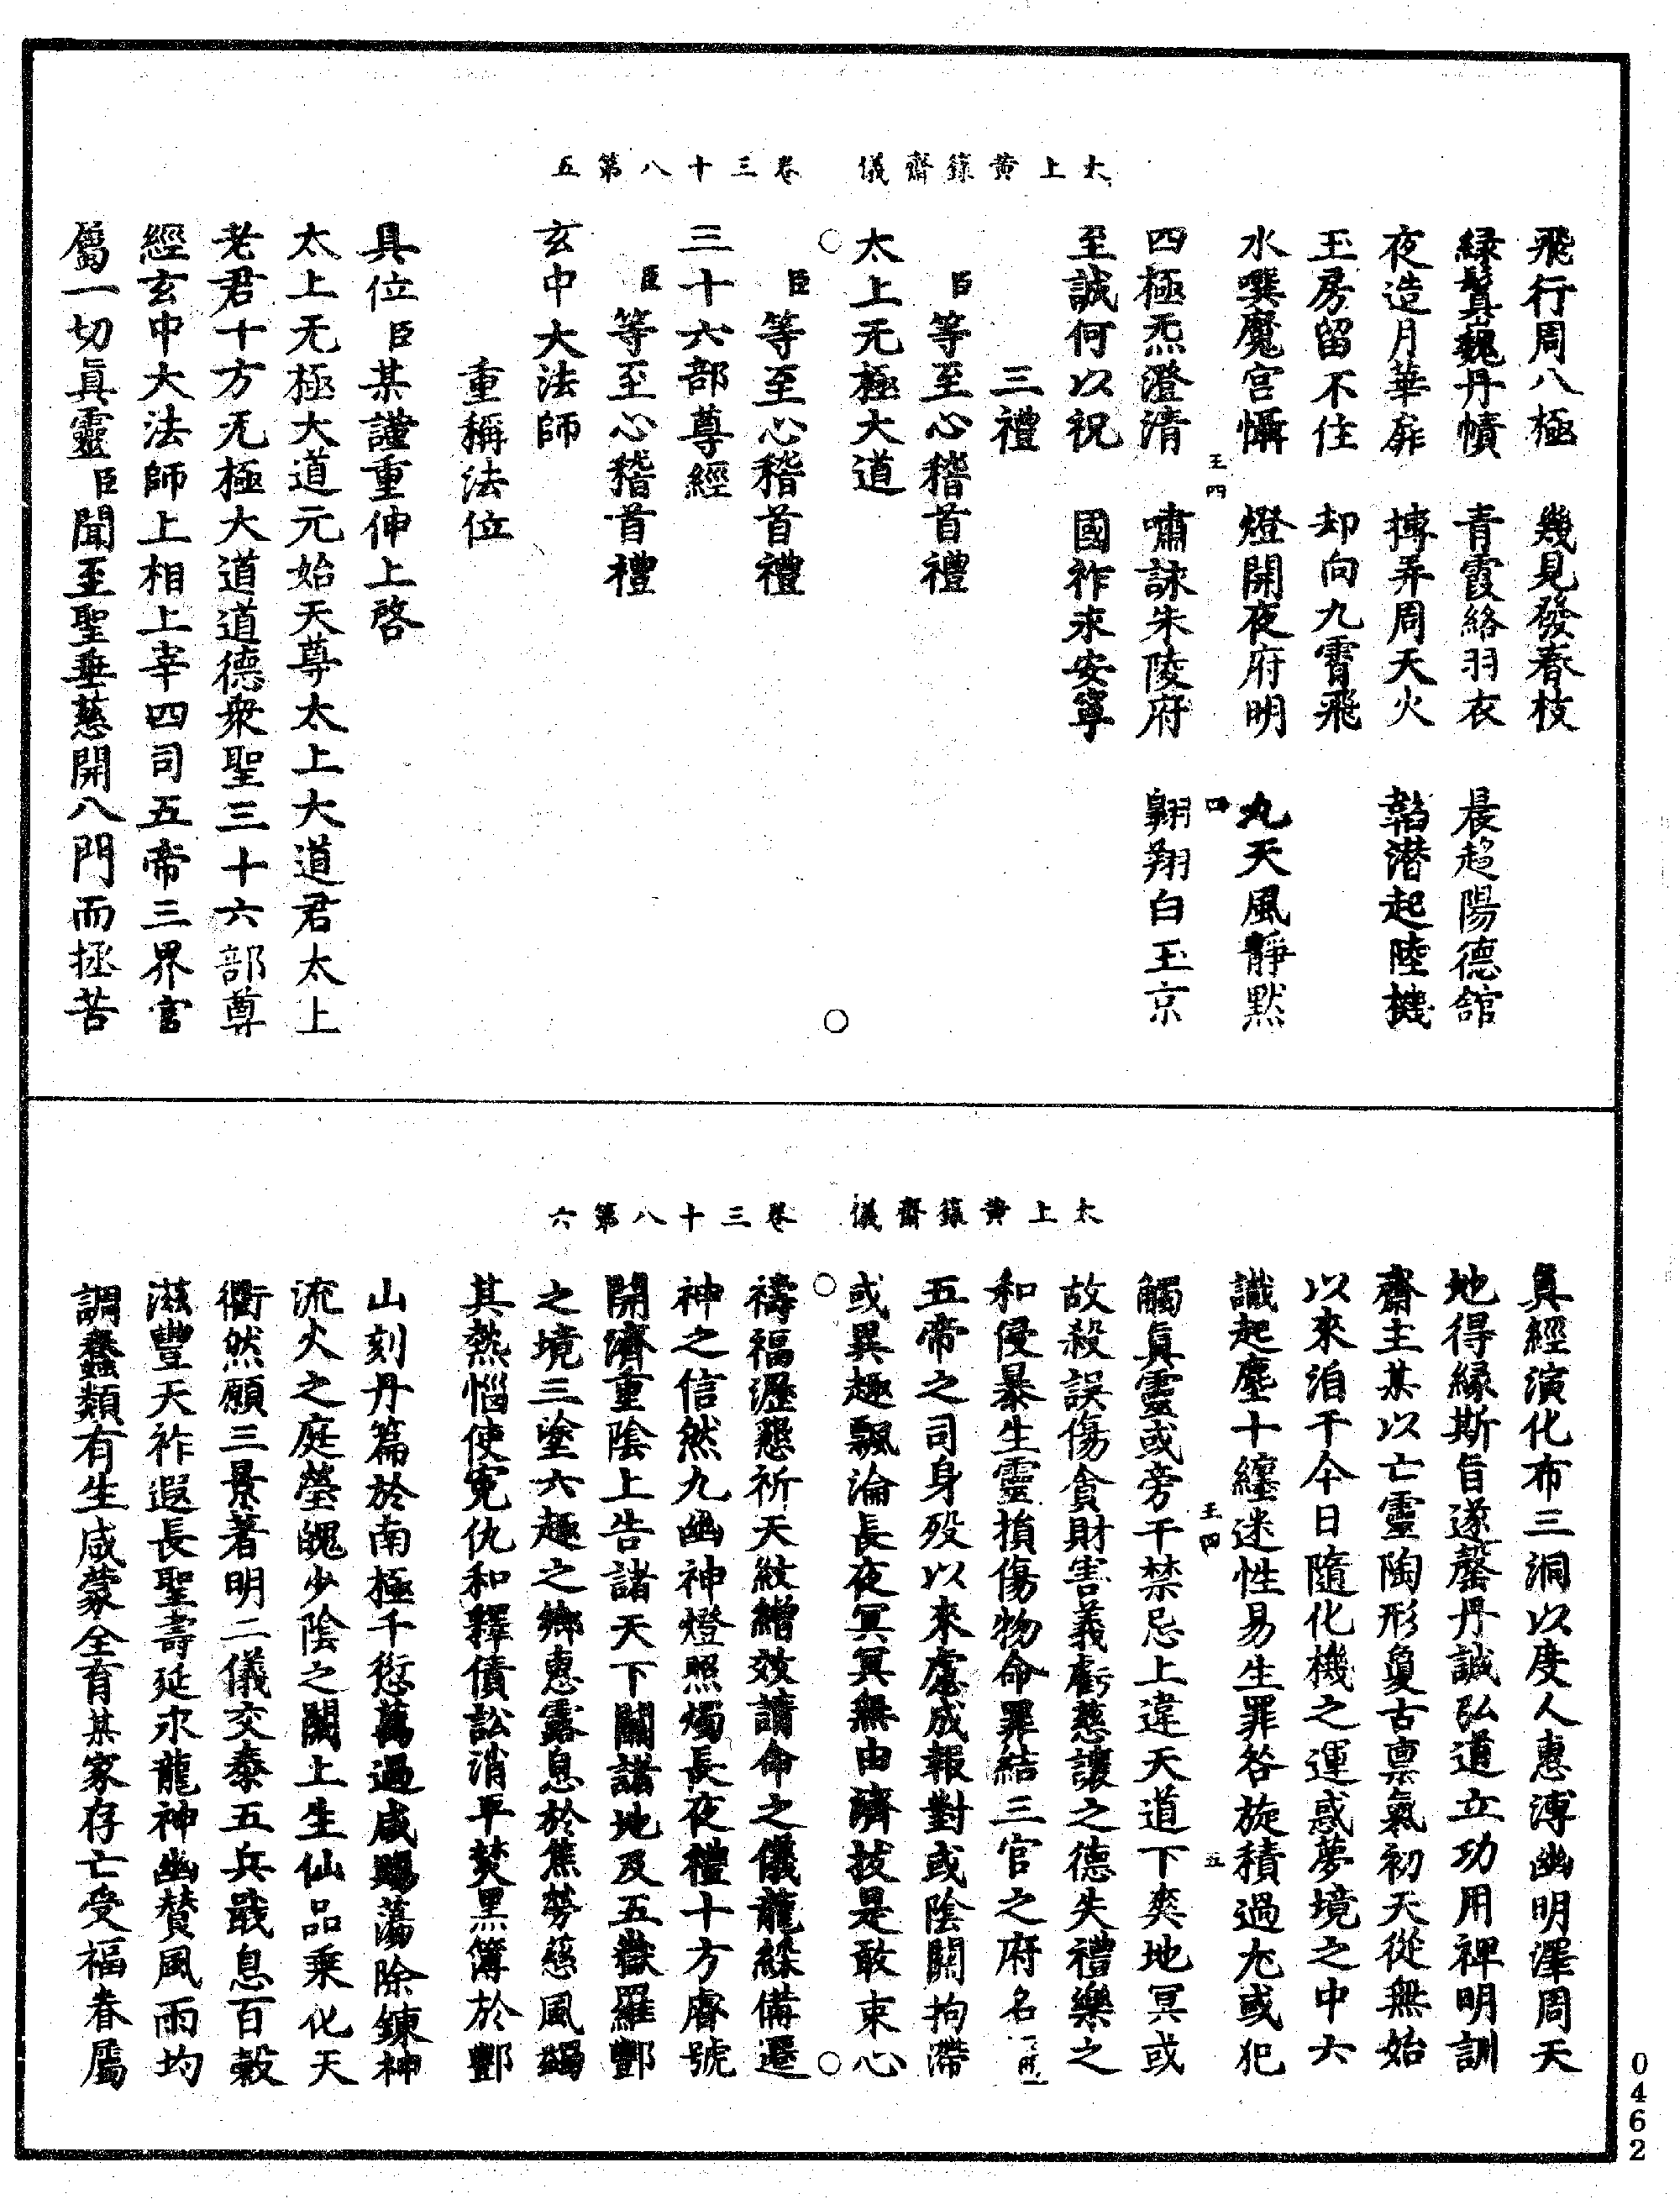 太上黃籙齋儀　卷三十八第五
飛行周八極　幾見發春枝
綠鬢巍丹幘　青霞絡羽衣　晨趍陽德舘
夜造月華扉　摶弄周天火　韜潜起陸機
玉房留不住　却向九霄飛
水噀魔宫懾　燈開夜府明　九天風靜默
王四　四
四極炁澄清　嘯詠朱陵府　翱翔白玉京
至誠何以祝　國祚永安寧
三禮
臣等至心稽首禮
太上无極大道
臣等至心稽首禮
三十六部尊經
臣等至心稽首禮
玄中大法師
重稱法位
具位臣某謹重伸上啓
太上无極大道元始天尊太上大道君太上
老君十方无極大道道德衆聖三十六部尊
經玄中大法師上相上宰四司五帝三界官
屬一切眞靈臣聞至聖垂慈開八門而拯苦
太上黃籙齋儀　卷三十八第六
眞經演化布三洞以度人惠溥幽明澤周天
地得緣斯旨遂罄丹誠弘道立功用禆明訓
齋主某以亡靈陶形夐古禀氣初天從無始
以來泊于今日隨化機之運惑夢境之中六
識起塵十纏迷性易生罪咎旋積過尤或犯
王四　五
觸眞靈或旁干禁忌上違天道下爽地冥或
故殺誤傷貪財害義虧慈讓之德失禮樂之
和侵暴生靈損傷物命罪結三官之府名
五帝之司身歿以來處成報對或陰關拘滯
或異趣飄淪長夜冥冥無由濟拔是敢束心
禱福瀝懇祈天紋繒效請命之儀龍綵備遷
神之信然九幽神燈照燭長夜禮十方睿號
開濟重陰上告諸天下關諸地及五嶽羅酆
之境三塗六趣之鄉惠露息於焦勞慈風蠲
其熱惱使寃仇和釋債訟消平焚黑簿於酆
山刻丹篇於南極千愆萬過咸賜蕩除鍊神
流火之庭瑩魄少陰之闕上生仙品乘化天
衢然願三景著明二儀交泰五兵戢息百穀
滋豐天祚遐長聖壽延永龍神幽贊風雨均
調蠢類有生咸蒙全育某家存亡受福眷屬
0462